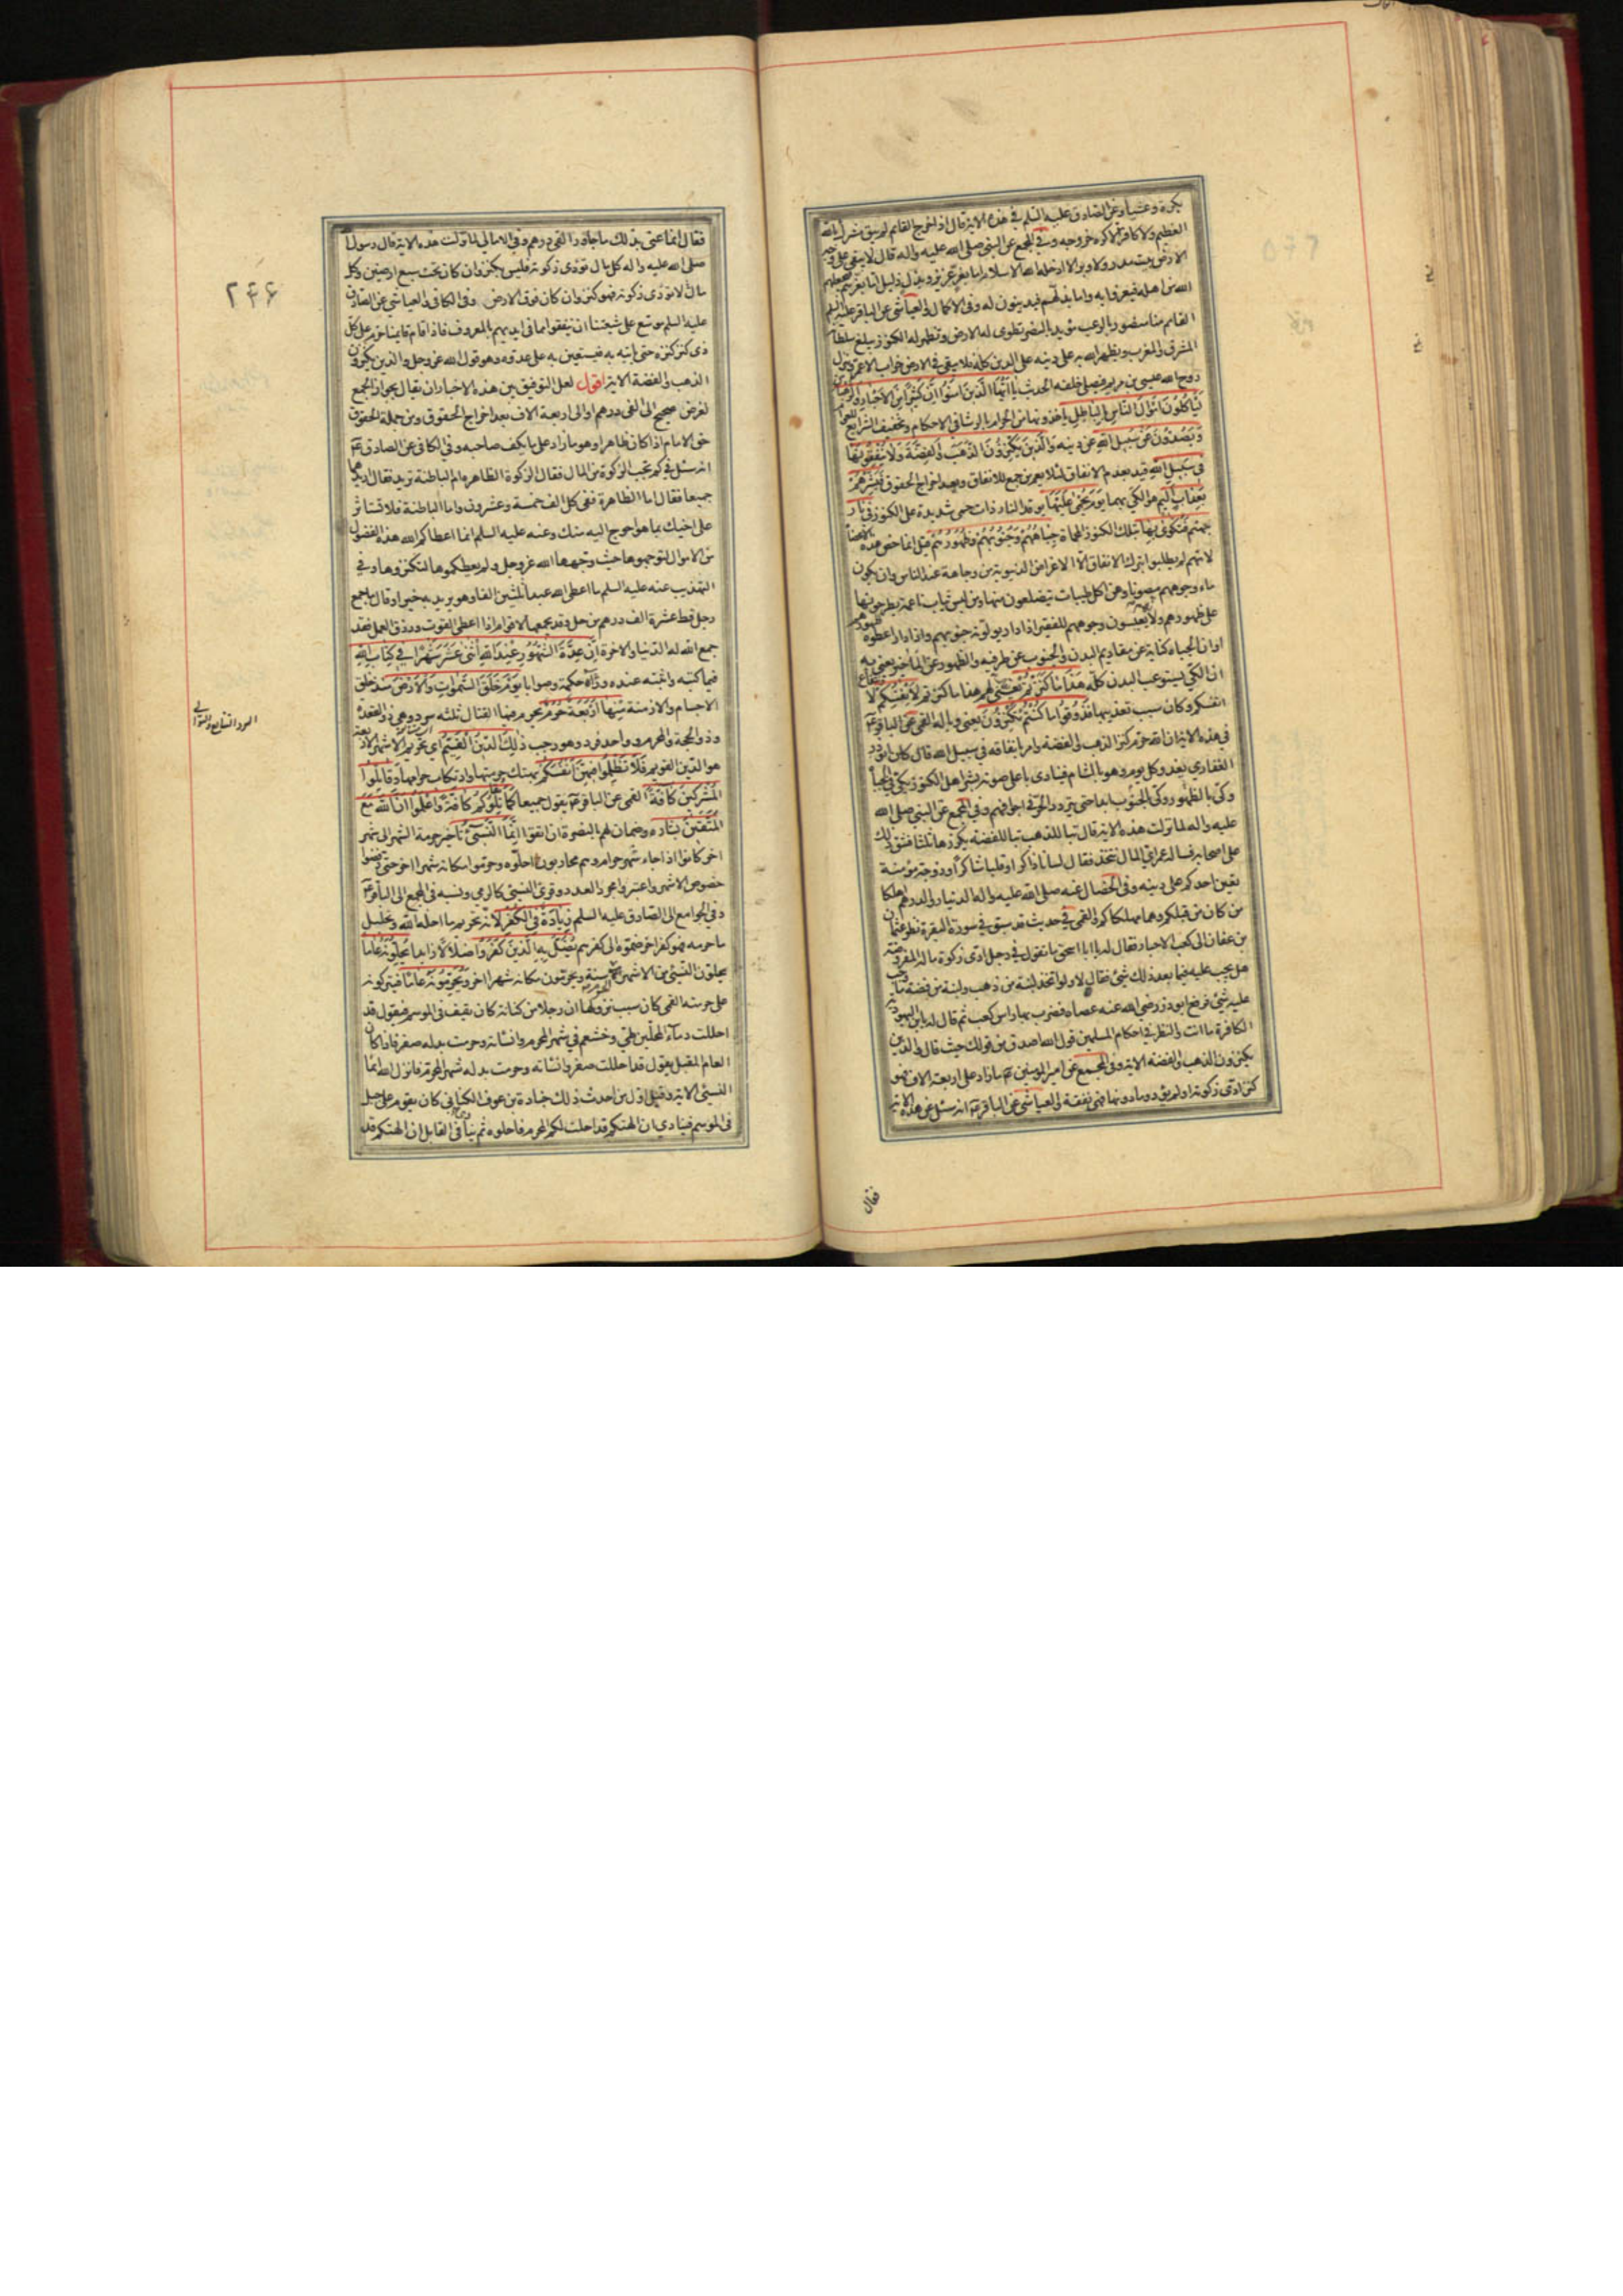 بكرة وعشيا وعن الصادق عليه السلم في هذه الاية قال اذا خرج القائم لم يبق مشرك بالله
العظيم ولا كافر الا كره خروجه وفي المجمع عن النبي صلى الله عليه واله قال لا يبقى على وجه
الارض بيت مدر ولا وبر الا ادخله الله الاسلام اما بعز عزيز وبذل ذليل اما يعزهم فيجعلهم
الله من اهله فيعزوا به واما يذلهم فيدينون له وفي الاكمال والعياشي عن الباقر عليه السلم
القائم منا منصور بالرعب مؤيد بالنصر تطوى له الارض وتظهر له الكنوز يبلغ سلطانه
المشرق والمغرب ويظهر الله به على دينه على الدين كله فلا يبقى في الارض خراب الا عمر وينزل
روح الله عيسى بن مريم فيصلي خلفه الحديث يا ايها الذين امنوا ان كثيرا من الاحبار والرهبان
ليأكلون اموال الناس بالباطل ياخذونها من الحرام بالرشا في الاحكام وتخفيف الشرايع للعوام
ويصدون عن سبيل الله عن دينه والذين يكنزون الذهب والفضة ولا ينفقونها
في سبيل الله قيد بعدم الانفاق لئلا يعم من جمع للانفاق وبعد اخراج الحقوق فبشرهم
بعذاب اليم هو الكي بهما يوم يحمى عليها يوقد النار ذات حمى شديدة على الكنوز في نار
جهنم فتكوى بها بتلك الكنوز المحماة جباههم وجنوبهم وظهورهم قيل انما خص هذه الاعضاء
لانهم لم يطلبوا بترك الانفاق الا الاغراض الدنيوية من وجاهة عند الناس وان يكون
ماء وجوههم مصونا ومن اكل طيبات يتضلعون منها ومن لبس ثياب ناعمة يطرحونها
على ظهورهم ولا يعبسون وجوههم للفقير اذا راو يولونه جنوبهم واذا دار اعطوه ظهورهم
او ان الجباه كناية عن مقاديم البدن والجنوب عن طرفيه والظهور عن المآخير يعني به
ان الكي يستوعب البدن كله هذا ما كنزتم يعني لهم هذا ما كنزتم لانفسكم لانتفاع
انفسكم وكان سبب تعذيبها فذوقوا ما كنتم تكنزون يعني وباله القمي عن الباقر ع
في هذه الاية ان الله حرم كنز الذهب والفضة وامر بانفاقه في سبيل الله قال كان ابوذر
الغفاري يغدو كل يوم وهو بالشام فينادي باعلى صوته بشر اهل الكنوز بكي في الجباه
وكي بالظهور وكي الجنوب ابدا حتى يتردد الحر في اجوافهم وفي المجمع عن النبي صلى الله
عليه واله لما نزلت هذه الاية قال تبا للذهب تبا للفضة يكررها ثلثا فشق ذلك
على اصحابه فسأله عمر اي المال نتخذ فقال لسانا ذاكرا وقلبا شاكرا وزوجة مؤمنة
تعين احدكم على دينه وفي الخصال عنه صلى الله عليه واله الدنيا والدرهم اهلكا
من كان من قبلكم وهما مهلكاكم والقمي في حديث قد سبق في سورة البقرة نظر عثمان
بن عفان الى كعب الاحبار فقال له يا ابا اسحق ما تقول في رجل ادى زكوة ماله المفروضة
هل يجب عليه فيما بعد ذلك شيئ فقال لا ولو اتخذ لبنة من ذهب ولبنة من فضة ما وجب
عليه شيئ فرفع ابوذر رضي الله عنه عصاه فضرب بها راس كعب ثم قال له يا بن اليهودية
الكافرة ما انت والنظر في احكام المسلمين قول الله اصدق من قولك حيث قال والذين
يكنزون الذهب والفضة الاية وفي المجمع عن امير المومنين ع ما زاد على اربعة الاف فهو
كنز ادى زكوته او لم يؤد وما دونها فهي نفقة والعياشي عن الباقر ع انه سئل عن هذه الاية
فقال
فقال انما عنى بذلك ما جاوز الفي درهم وفي الامالي لما نزلت هذه الاية قال رسول الله
صلى الله عليه واله كل مال تؤدى زكوته فليس بكنز وان كان تحت سبع ارضين وكل
مال لا تؤدى زكوته فهو كنز وان كان فوق الارض وفي الكافي والعياشي عن الصادق
عليه السلم موسع على شيعتنا ان ينفقوا مما في ايديهم بالمعروف فاذا قام قايمنا حرم على كل
ذي كنز كنزه حتى ياتيه به فيستعين به على عدوه وهو قول الله عز وجل والذين يكنزون
الذهب والفضة الاية اقول لعل التوفيق بين هذه الاخبار ان يقال بجواز الجمع
لغرض صحيح الى الفي درهم او الى اربعة الاف بعد اخراج الحقوق ومن جملة الحقوق
حق الامام اذا كان ظاهرا وهو ما زاد على ما يكف صاحبه وفي الكافي عن الصادق ع
انه سئل في كم تجب الزكوة من المال فقال الزكوة الظاهرة ام الباطنة تريد فقال اريدهما
جميعا فقال اما الظاهرة ففي كل الف خمسة وعشرون واما الباطنة فلا تستاثر
على اخيك بما هو احوج اليه منك وعنه عليه السلم انما اعطاكم الله هذه الفضول
من الاموال لتوجهوها حيث وجهها الله عز وجل ولم يعطكموها لتكنزوها وفي
التهذيب عنه عليه السلم ما اعطى الله عبدا ثلثين الفا وهو يريد به خيرا وقال ما جمع
رجل قط عشرة الف درهم من حل وقد يجمعها لاقوام اذا اعطى القوت ورزق العمل فقد
جمع الله له الدنيا والاخرة ان عدة الشهور عند الله اثنى عشر شهرا في كتاب الله
فيما كتبه واثبته عنده ورآه حكمة وصوابا يوم خلق السموات والارض منذ خلق
الاجسام والازمنة منها اربعة حرم يحرم فيها القتال ثلثه سرد وهي ذو القعدة
وذو الحجة والمحرم وواحد فرد وهو رجب ذلك الدين القيم اي تحريم الاشهر الاربعة
هو الدين القويم فلا تظلموا فيهن انفسكم بهتك حرمتها وارتكاب حرامها وقاتلوا
المشركين كافة القمي عن الباقر ع يقول جميعا كما يقاتلونكم كافة واعلموا ان الله مع
المتقين بشارة وضمان لهم بالنصرة ان اتقوا انما النسيئ تاخير حرمة الشهر الى شهر
اخر كانوا اذا جاء شهر حرام وهم محاربون احلوه وحرموا مكانه شهرا اخر حتى رفضوا
خصوص الاشهر واعتبروا مجرد العدد وقرئ النسي كالرمي ونسبه في المجمع الى الباقر ع
وفي الجوامع الى الصادق عليه السلم زيادة في الكفر لانه تحريم ما احله الله وتحليل
ما حرمه فهو كفر اخر ضموه الى كفرهم يضل به الذين كفروا ضلالا زايدا يحلونه عاما
يحلون النسيئ من الاشهر الحرم سنة ويحرمون مكانه شهرا اخر ويحرمونه عاما فيتركونه
على حرمته القمي كان سبب نزولها ان رجلا من كنانة كان يقف في الموسم فيقول قد
احللت دماء المحلين طي وخثعم في شهر المحرم وانسأته وحرمت بدله صفر فاذا كان
العام المقبل يقول قد احللت صفر وانسأته وحرمت بدله شهر المحرم فانزل الله انما
النسيئ الاية وقيل اول من احدث ذلك جنادة بن عوف الكناني كان يقوم على جمل
في الموسم فينادي ان الهتكم قد احلت لكم المحرم فاحلوه ثم ينادي في القابل ان الهتكم قد
۲۴۶